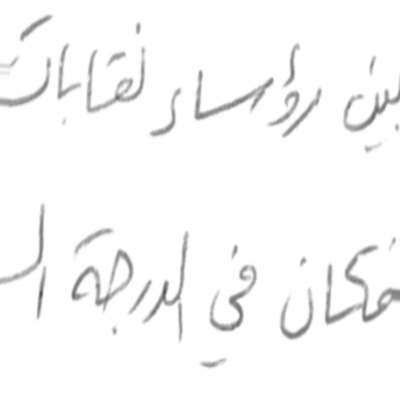 بين رؤساء نقابات
فكان في الدرجة